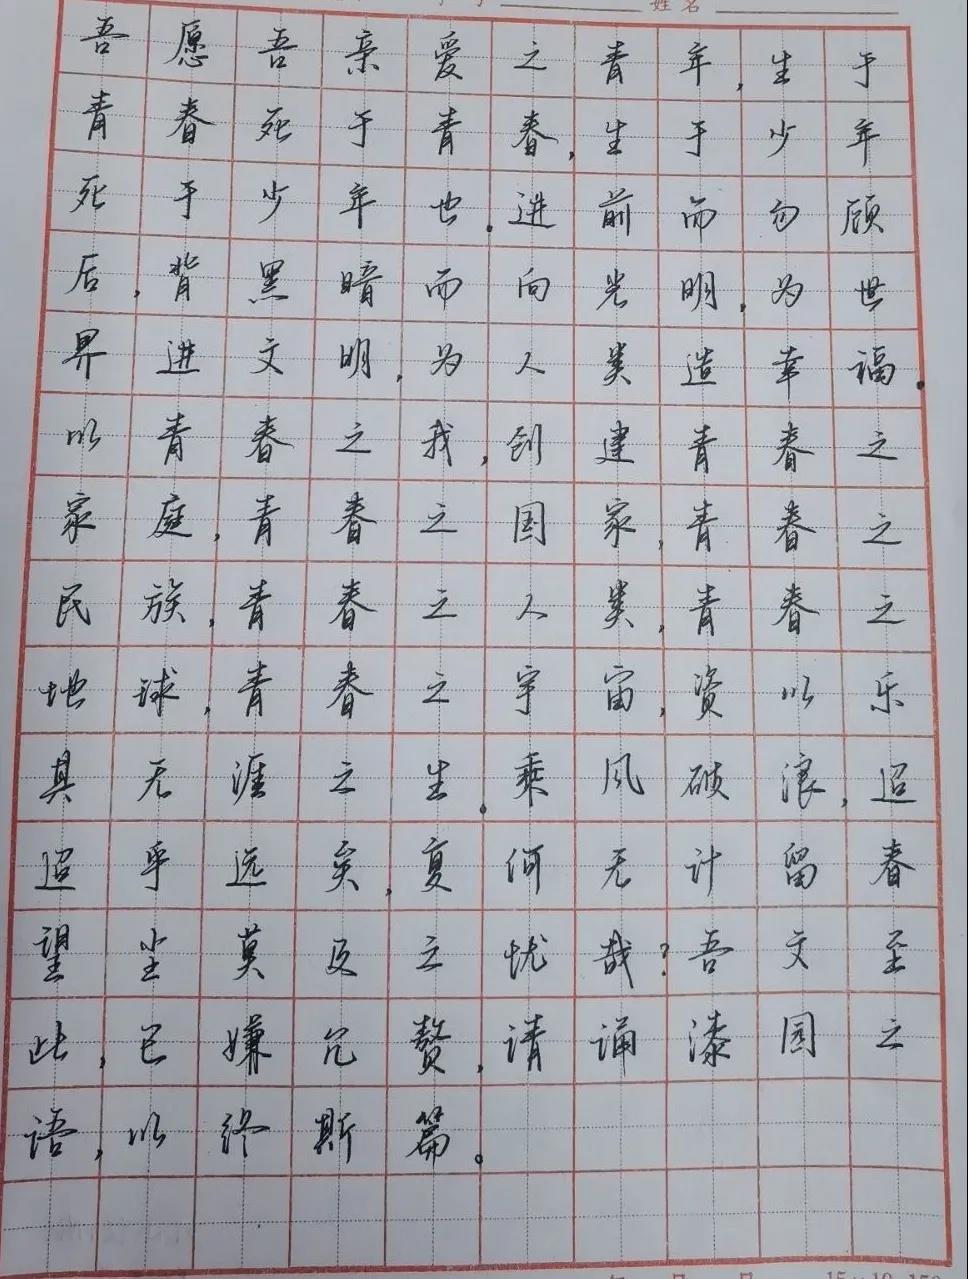 姓名
吾愿吾亲爱之青年,生于
青春死于青春,生于少年
死于少年也.进前而勿顾
后,背黑暗而向光明,为世
界进文明,为人类造幸福.
以青春之我,创建青春之
家庭,青春之国家,青春之
民族,青春之人类,青春之
地球,青春之宇宙,资以乐
其无涯之生.乘风破浪,迢
迢乎远矣,复何无计留春
望尘莫及之忧哉?吾文至
此,已嫌冗赘,请诵漆园之
语,以终斯篇。